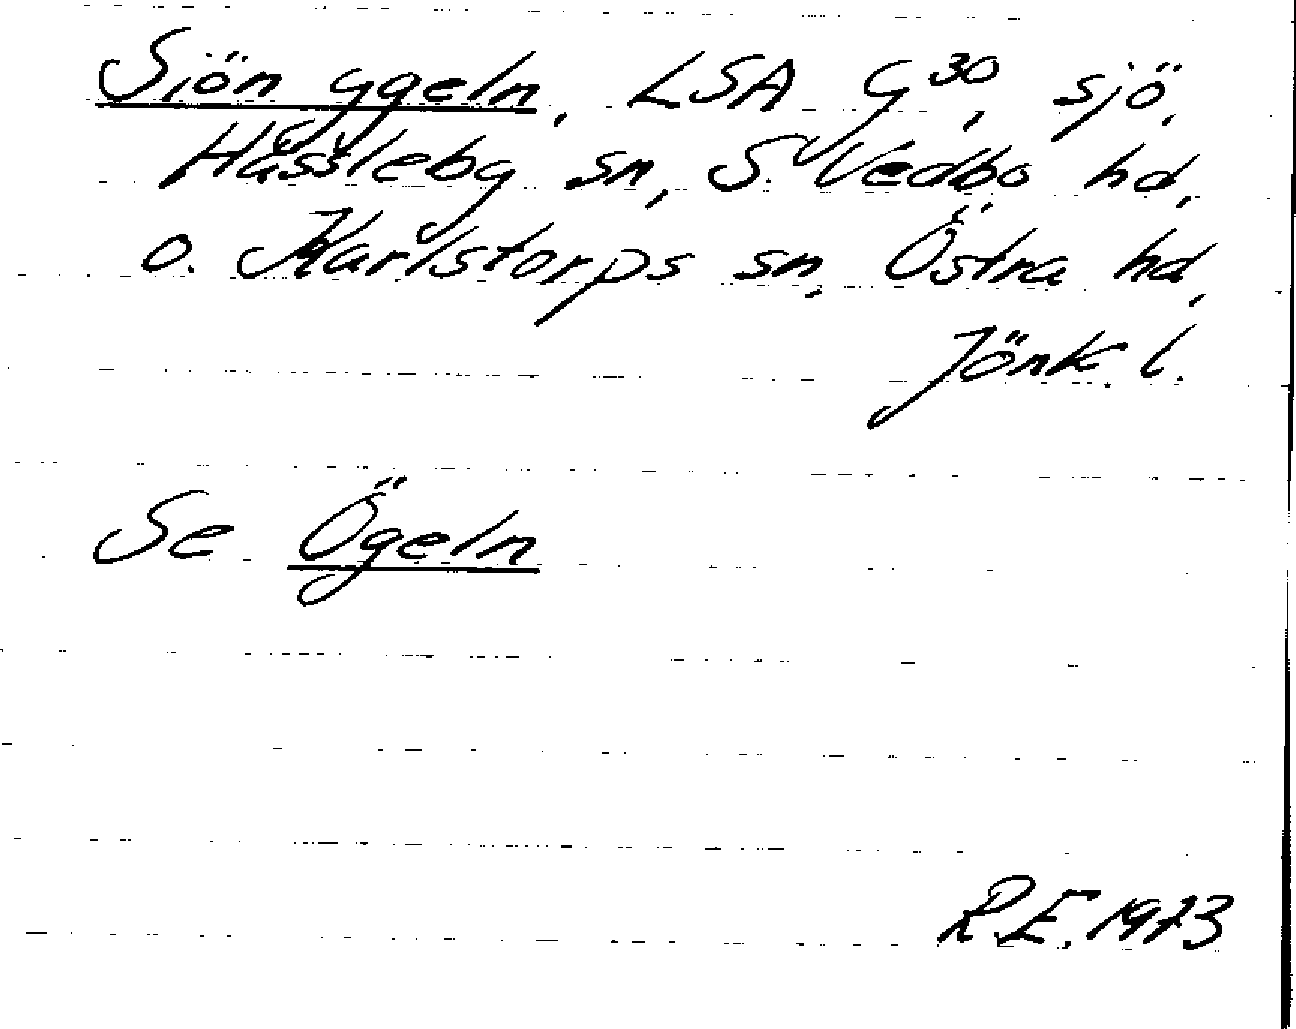 Sjön ygeln, LSA G30, sjö,
Hässleby sn, S. Vedbo hd,
o. Karlstorps sn, Östra hd,
Jönk. l.
Se Ögeln
R.E. 1973